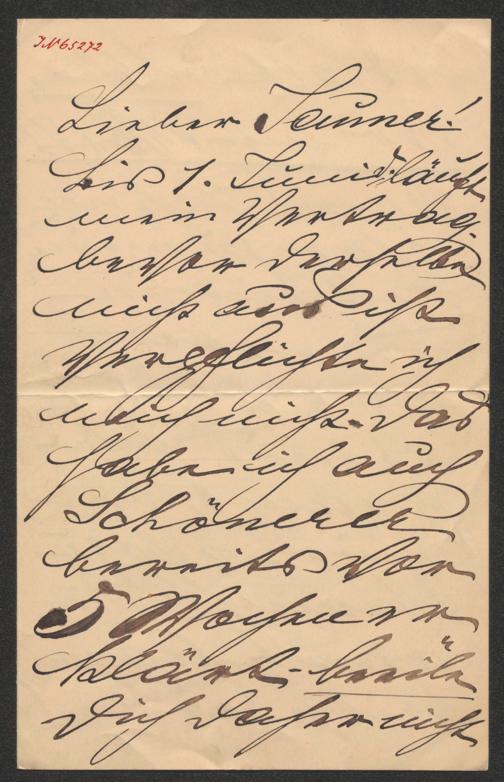 IN 65272
Lieber Jauner!
Bis 1. Juni d. J. läuft
mein Vertrag
bevor derselbe
nicht aus ist
verpflichte ich
mich nicht. Das
habe ich auch
Schönerer
bereits vor
5 Wochen er
klärt - beeile
Dich daher nicht